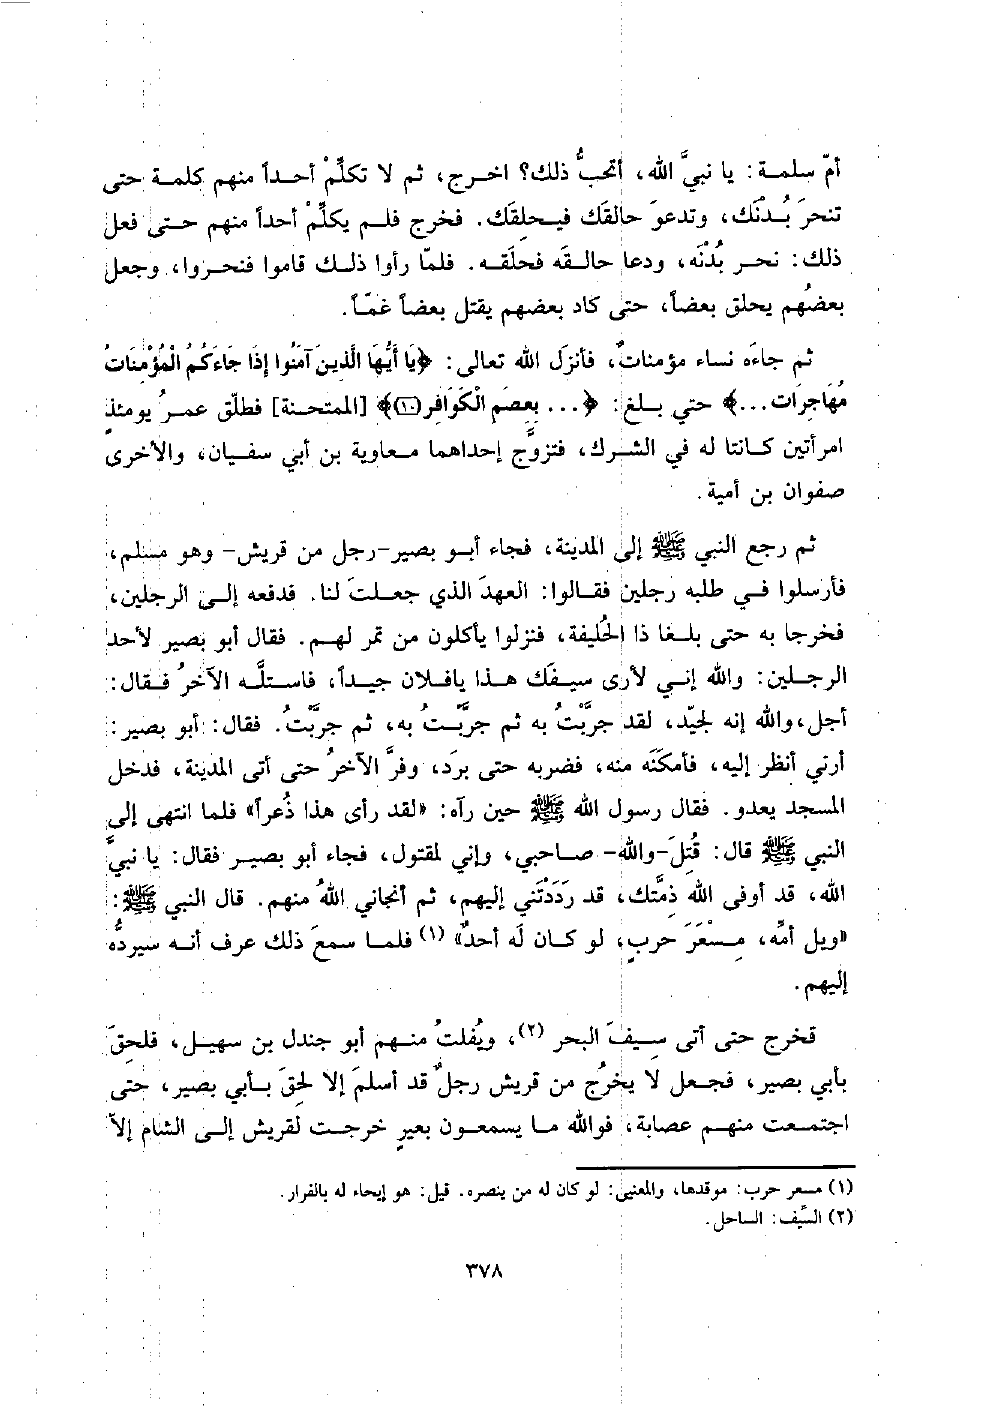 أمّ سلمـة: يا نبيَّ الله، أتحبُّ ذلك؟ اخـرج، ثم لا تكلِّمْ أحـداً منهم كلمـة حتى
تنحرَ بُدْنَك، وتدعوَ حالقَك فيـحلِقَك. فخرج فلـم يكلِّمْ أحداً منهم حتـى فعل
ذلك: نحـر بُدْنَه، ودعا حالـقَه فحلَقـه. فلمّا رأوا ذلـك قاموا فنحـروا، وجعل
بعضُهم يحلق بعضاً، حتى كاد بعضهم يقتل بعضاً غمّاً.
ثم جاءَه نساء مؤمناتٌ، فأنزلَ الله تعالى: ﴿يَا أَيُّهَا الَّذِينَ آمَنُوا إِذَا جَاءَكُمُ الْمُؤْمِنَاتُ
مُهَاجِرَات...﴾ حتي بـلغ: ﴿... بِعِصَمِ الْكَوَافِرِ(١٠)﴾ [الممتحنة] فطلّق عمـرُ يومئذٍ
امرأتين كـانتا له في الشـرك، فتزوَّج إحداهما مـعاوية بن أبي سفـيان، والأخرى
صفوان بن أمية.
ثم رجع النبي ﷺ إلى المدينة، فجاء أبـو بصير-رجل من قريش- وهو مسلم،
فأرسلوا فـي طلبه رجلين فقـالوا: العهدَ الذي جعلـتَ لنا. فدفعه إلـى الرجلين،
فخرجا به حتى بلـغا ذا الحُليفة، فنزلوا يأكلون من تمر لهـم. فقال أبو بصير لأحد
الرجـلين: والله إنـي لأرى سيـفَك هـذا يافـلان جيـداً، فاستلَّـه الآخرُ فـقال:
أجل،والله إنه لجيّد، لقد جربَّتُ به ثم جربَّـتُ به، ثم جربَّتُ. فقال: أبو بصير:
أرني أنظر إليه، فأمكنَه منه، فضربه حتى برَد، وفرَّ الآخرُ حتى أتى المدينة، فدخل
المسجد يعدو. فقال رسول الله ﷺ حين رآه: «لقد رأى هذا ذُعراً» فلما انتهى إلى
النبي ﷺ قال: قُتِلَ-والله- صـاحبي، وإني لمقتول، فجاء أبو بصيـر فقال: يا نبيَّ
الله، قد أوفى الله ذِمَّتك، قد ردَدْتَني إليهم، ثم أنجاني اللهُ منهم. قال النبي ﷺ:
«ويل أمِّه، مِـسْعَرَ حربٍ، لو كـان لَه أحدٌ» (١) فلمـا سمعَ ذلك عرف أنـه سيردُّه
إليهم.
فخرج حتى أتى سِيـفَ البحر (٢)، ويُفلتُ منـهم أبو جندل بن سهيـل، فلحِقَ
بأبي بصير، فـجعل لا يخرُج من قريش رجلٌ قد أسلمَ إلا لحِقَ بـأبي بصير، حتى
اجتمـعت منهـم عصابة، فوالله مـا يسمعـون بعيرٍ خرجـت لقريش إلـى الشام إلاّ
(١) مسعر حرب: موقدها، والمعنى: لو كان له من ينصره. قيل: هو إيحاء له بالفرار.
(٢) السِّيف: الساحل.
٣٧٨